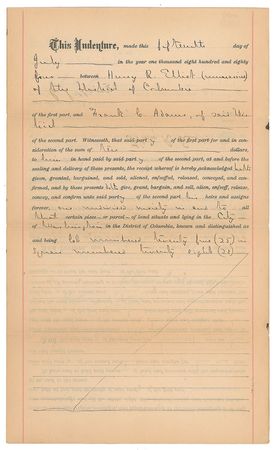 This Indenture, made this fifteenth day of
July in the year one thousand eight hundred and eighty
four between Henry R. Elliot (unmarried)
of the District of Columbia
of the first part, and Frank C. Adams, of said Dis
trict
of the second part. Witnesseth, that said part y of the first part for and in con-
sideration of the sum of Ten dollars,
to him in hand paid by said part y of the second part, at and before the sealing
and delivery of these presents, the receipt whereof is hereby acknowledged hath
given, granted, bargained, and sold, aliened, enfeoffed, released, conveyed, and con-
firmed, and by these presents doth give, grant, bargain, and sell, alien, enfeoff, release,
convey, and confirm unto said part y of the second part his heirs and assigns
forever, one undivided moiety in and to all
that certain piece or parcel of land situate and lying in the City
of Washington in the District of Columbia, known and distinguished as
and being Lot numbered twenty five (25) in
Square numbered twenty eight (28)